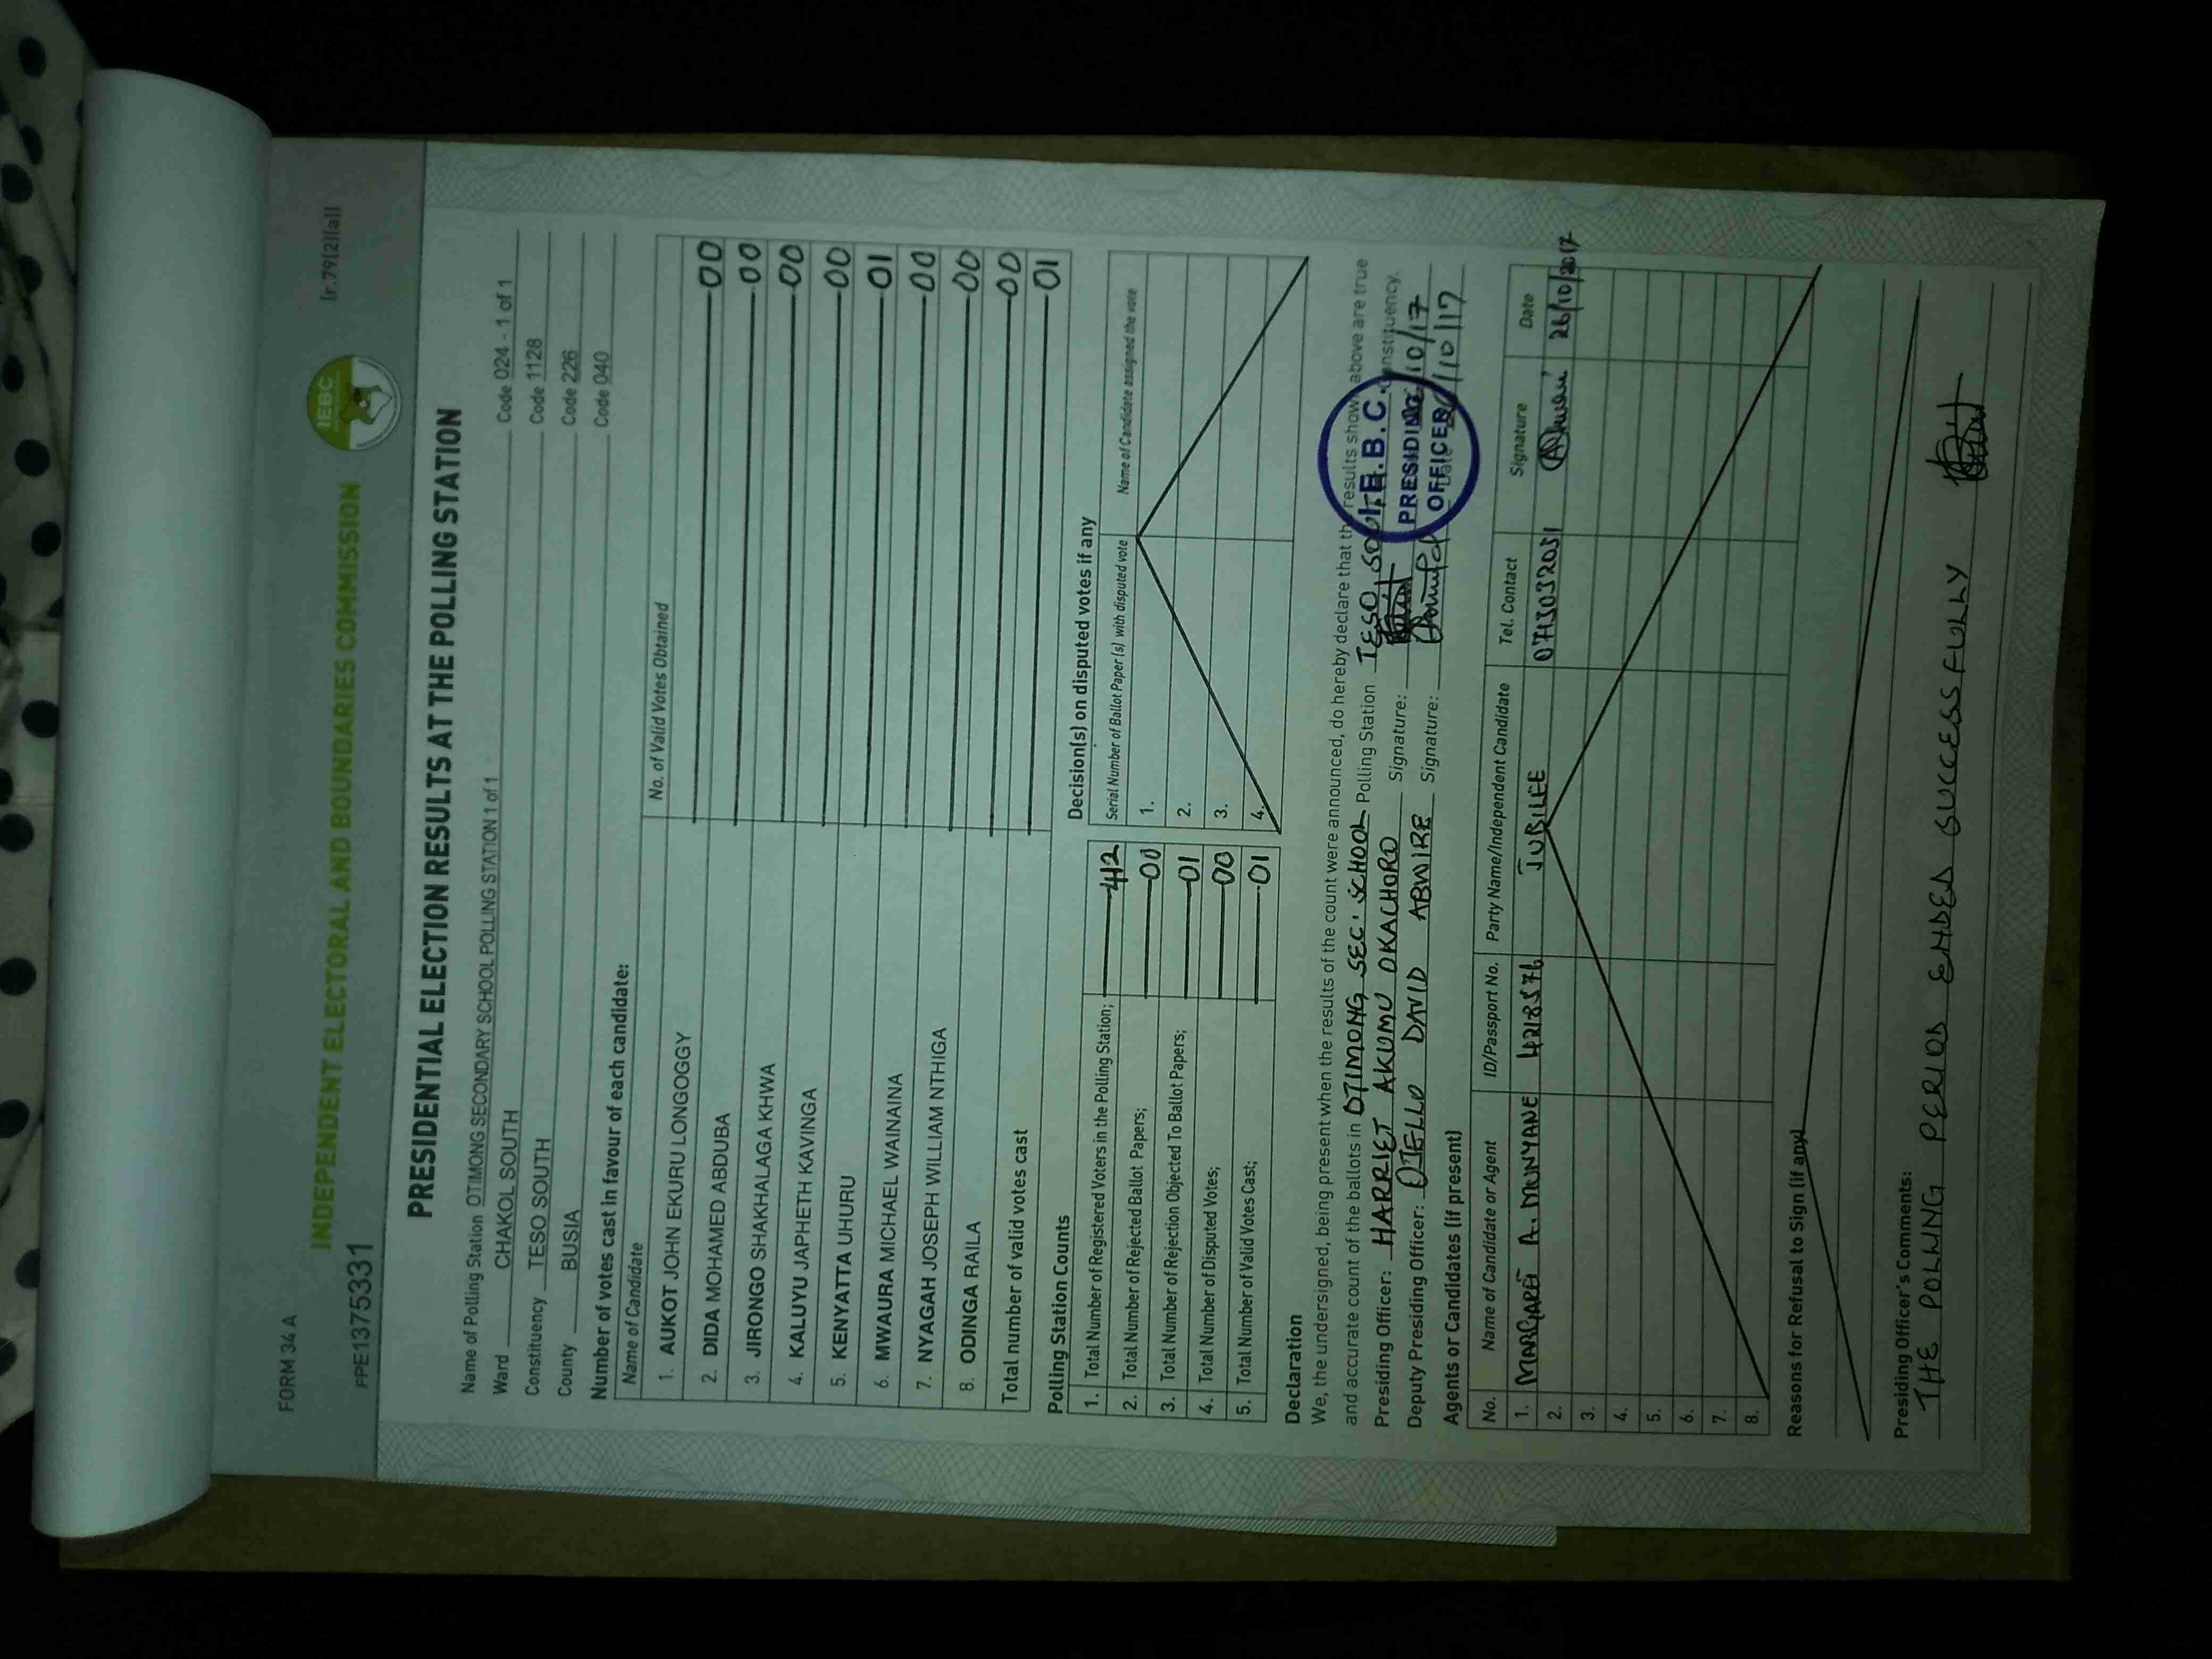 FORM 34 A
[r.79(2)(a)]
IEBC
INDEPENDENT ELECTORAL AND BOUNDARIES COMMISSION
FPE1375331
PRESIDENTIAL ELECTION RESULTS AT THE POLLING STATION
Name of Polling Station OTIMONG SECONDARY SCHOOL POLLING STATION 1 of 1 Code 024 - 1 of 1
Ward CHAKOL SOUTH Code 1128
Constituency TESO SOUTH Code 226
County BUSIA Code 040
Number of votes cast in favour of each candidate:
Name of Candidate No. of Valid Votes Obtained
1. AUKOT JOHN EKURU LONGOGGY 00
2. DIDA MOHAMED ABDUBA 00
3. JIRONGO SHAKHALAGA KHWA 00
4. KALUYU JAPHETH KAVINGA 00
5. KENYATTA UHURU 01
6. MWAURA MICHAEL WAINAINA 00
7. NYAGAH JOSEPH WILLIAM NTHIGA 00
8. ODINGA RAILA 00
Total number of valid votes cast 01
Polling Station Counts
1. Total Number of Registered Voters in the Polling Station; 412
2. Total Number of Rejected Ballot Papers; 00
3. Total Number of Rejection Objected To Ballot Papers; 01
4. Total Number of Disputed Votes; 00
5. Total Number of Valid Votes Cast; 01
Decision(s) on disputed votes if any
Serial Number of Ballot Paper(s) with disputed vote Name of Candidate assigned the vote
1.
2.
3.
4.
Declaration
We, the undersigned, being present when the results of the count were announced, do hereby declare that the results shown above are true
and accurate count of the ballots in OTIMONG SEC. SCHOOL Polling Station TESO SOUTH Constituency.
Presiding Officer: HARRIET AKUMU OKACHORO Signature: /10/17
Deputy Presiding Officer: OTELLO DAVID ABWIRE Signature: /10/17
I.E.B.C.
PRESIDING
OFFICER
Agents or Candidates (if present)
No. Name of Candidate or Agent ID/Passport No. Party Name/Independent Candidate Tel. Contact Signature Date
1. MARGARET A. MUNYANE 4218576 JUBILEE 0715032051 26/10/2017
2.
3.
4.
5.
6.
7.
8.
Reasons for Refusal to Sign (if any)
Presiding Officer's Comments:
THE POLLING PERIOD ENDED SUCCESSFULLY